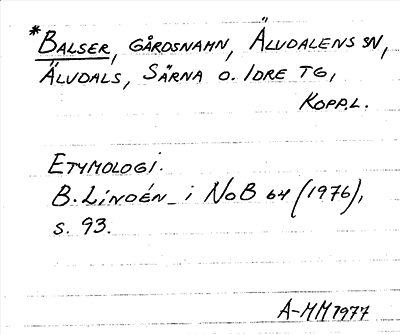 *BALSER, GÅRDSNAMN, ÄLVDALENS SN,
ÄLVDALS, SÄRNA O. IDRE TG,
KOPP.L.
ETYMOLOGI.
B. LINDÉN i NoB 64 (1976),
s. 93.
A-MM 1977